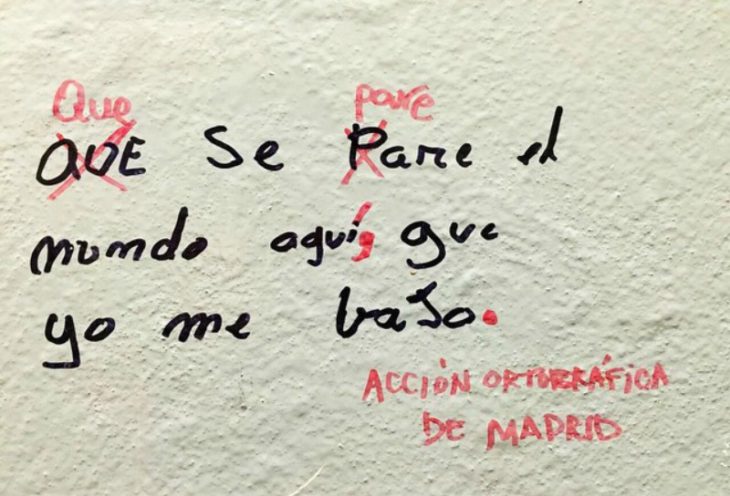 Que pare
QUE se Pare el
mundo aquí, que
yo me baJo.
ACCIÓN ORTOGRÁFICA
DE MADRID